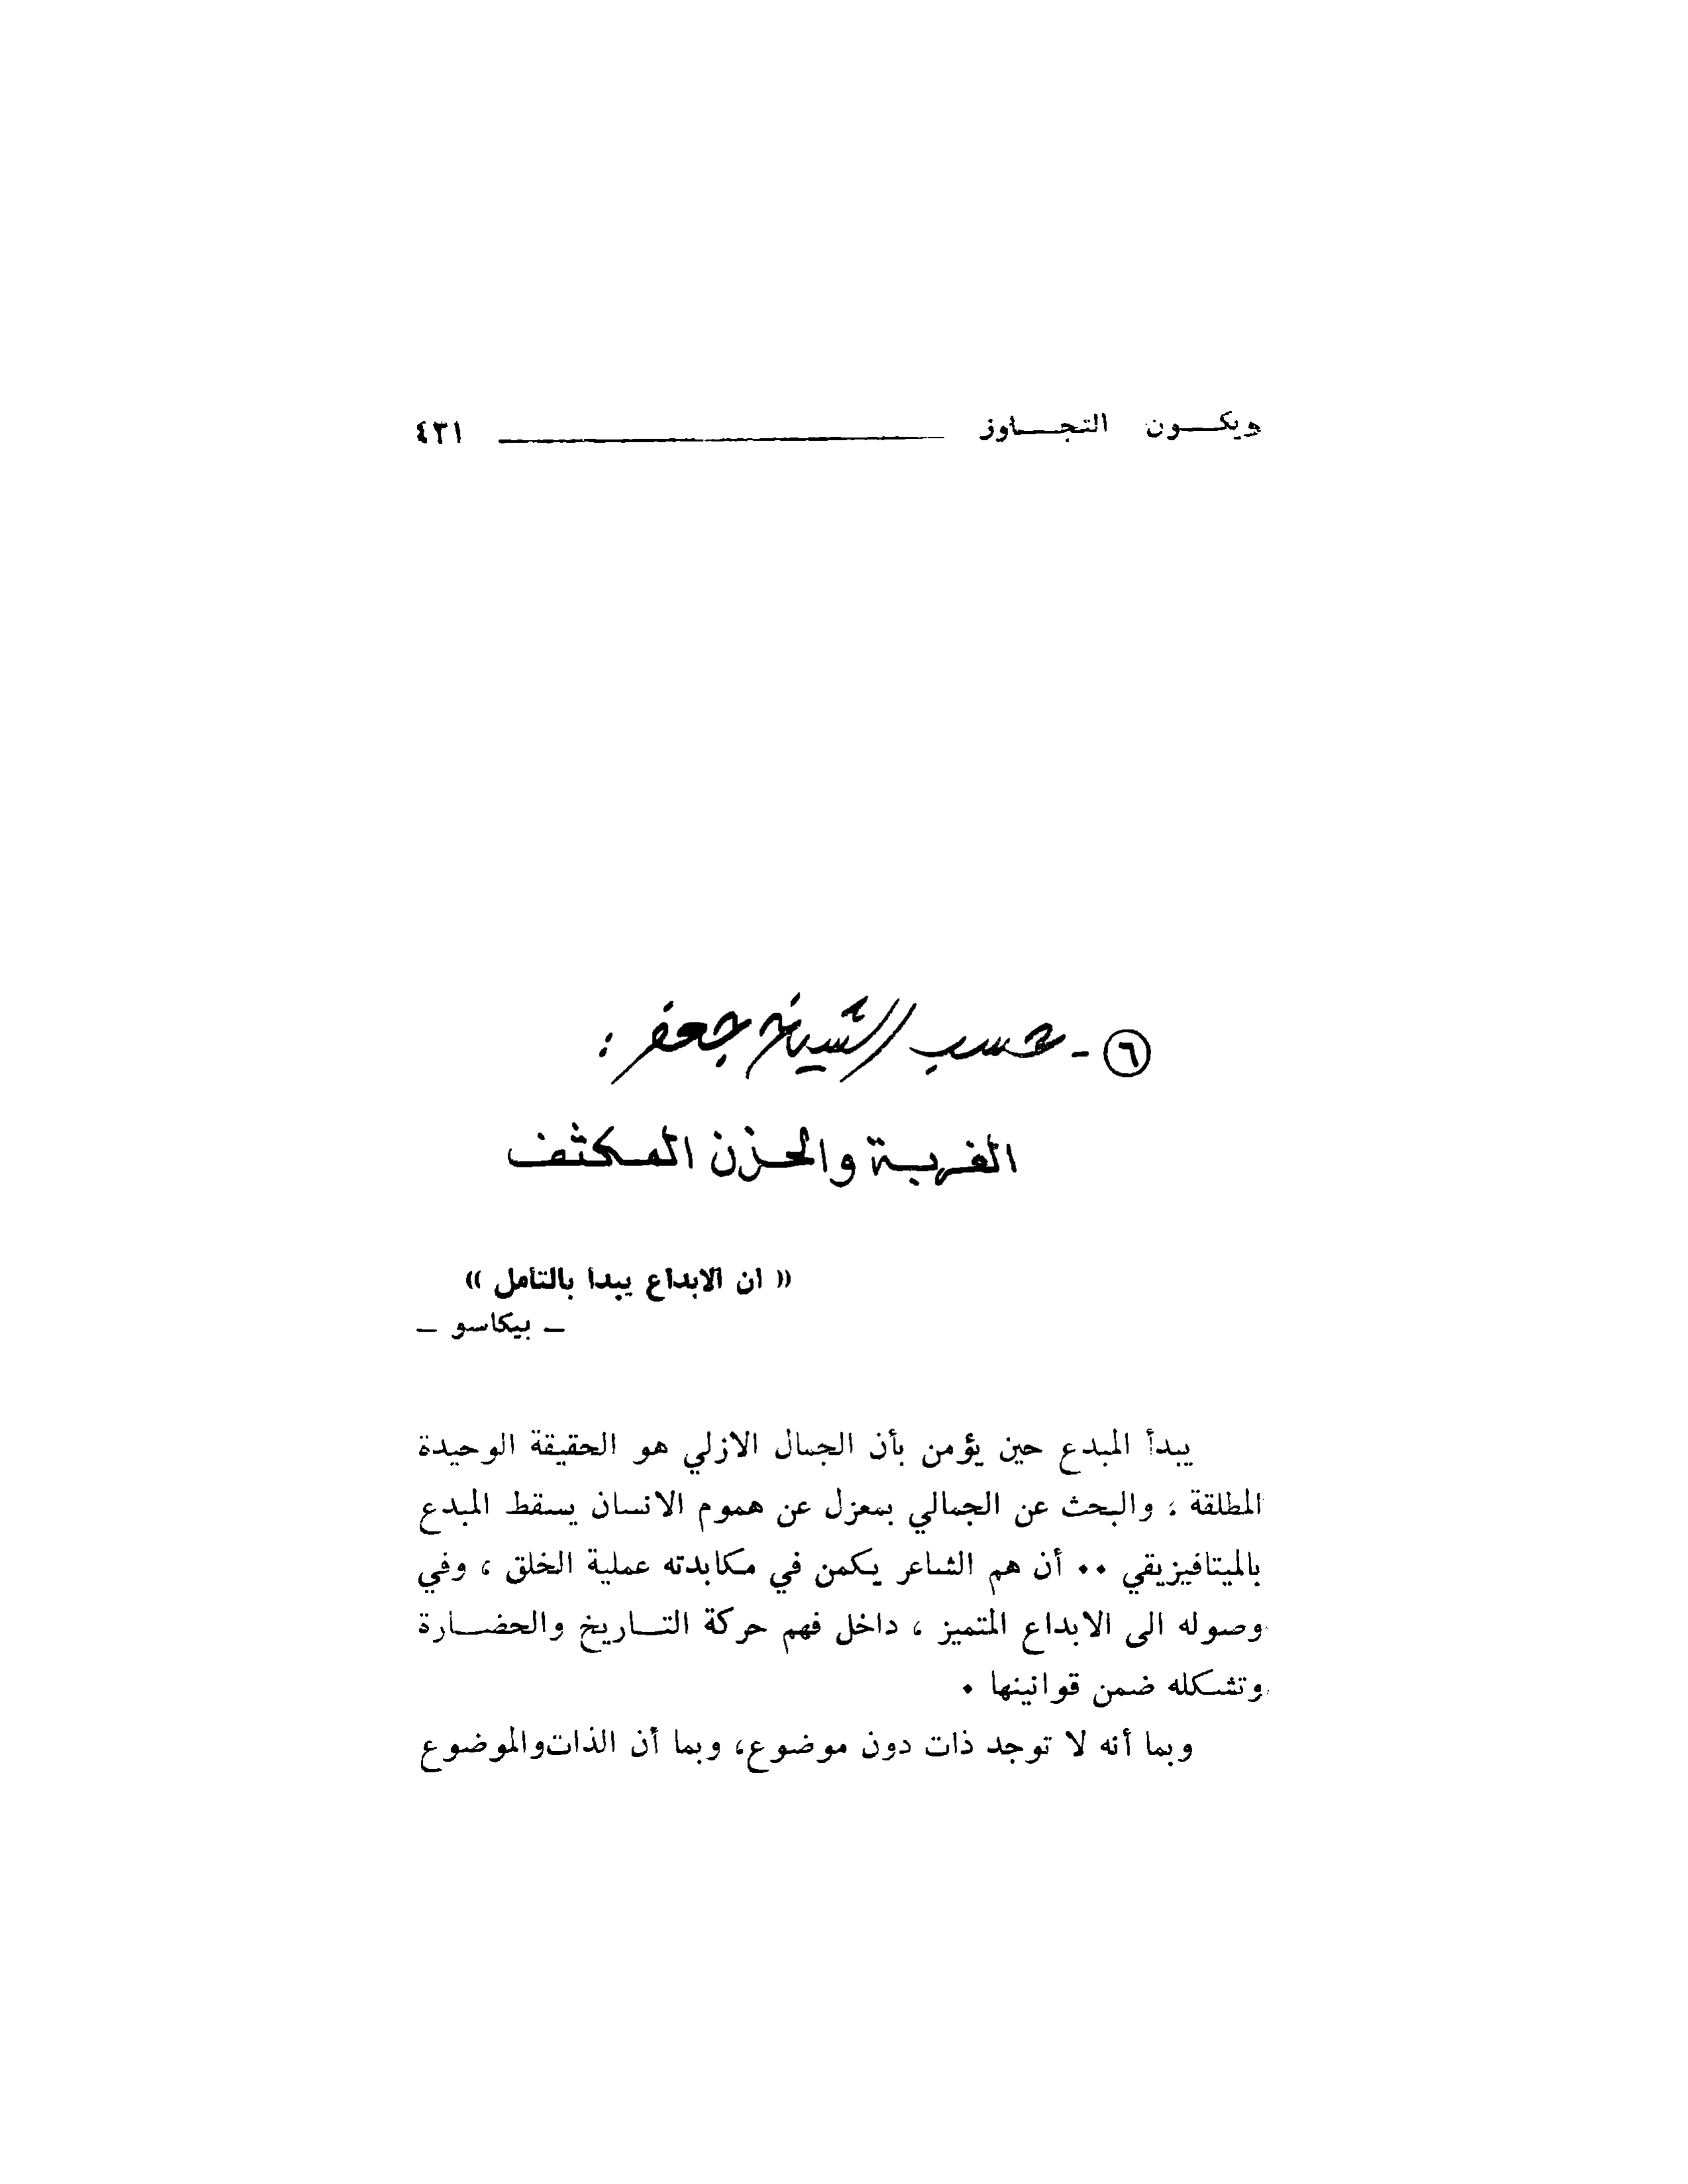 ويكون التجاوز ٤٣١
٦ - حسب الشيخ جعفر :
الغربة والحزن المكثف
(( ان الابداع يبدا بالتامل ))
– بيكاسو –
يبدأ المبدع حين يؤمن بأن الجمال الازلي هو الحقيقة الوحيدة
المطلقة ، والبحث عن الجمالي بمعزل عن هموم الانسان يسقط المبدع
بالميتافيزيقي ٠٠ أن هم الشاعر يكمن في مكابدته عملية الخلق ، وفي
وصوله الى الابداع المتميز ، داخل فهم حركة التاريخ والحضارة
وتشكله ضمن قوانينها ٠
وبما أنه لا توجد ذات دون موضوع، وبما أن الذات والموضوع